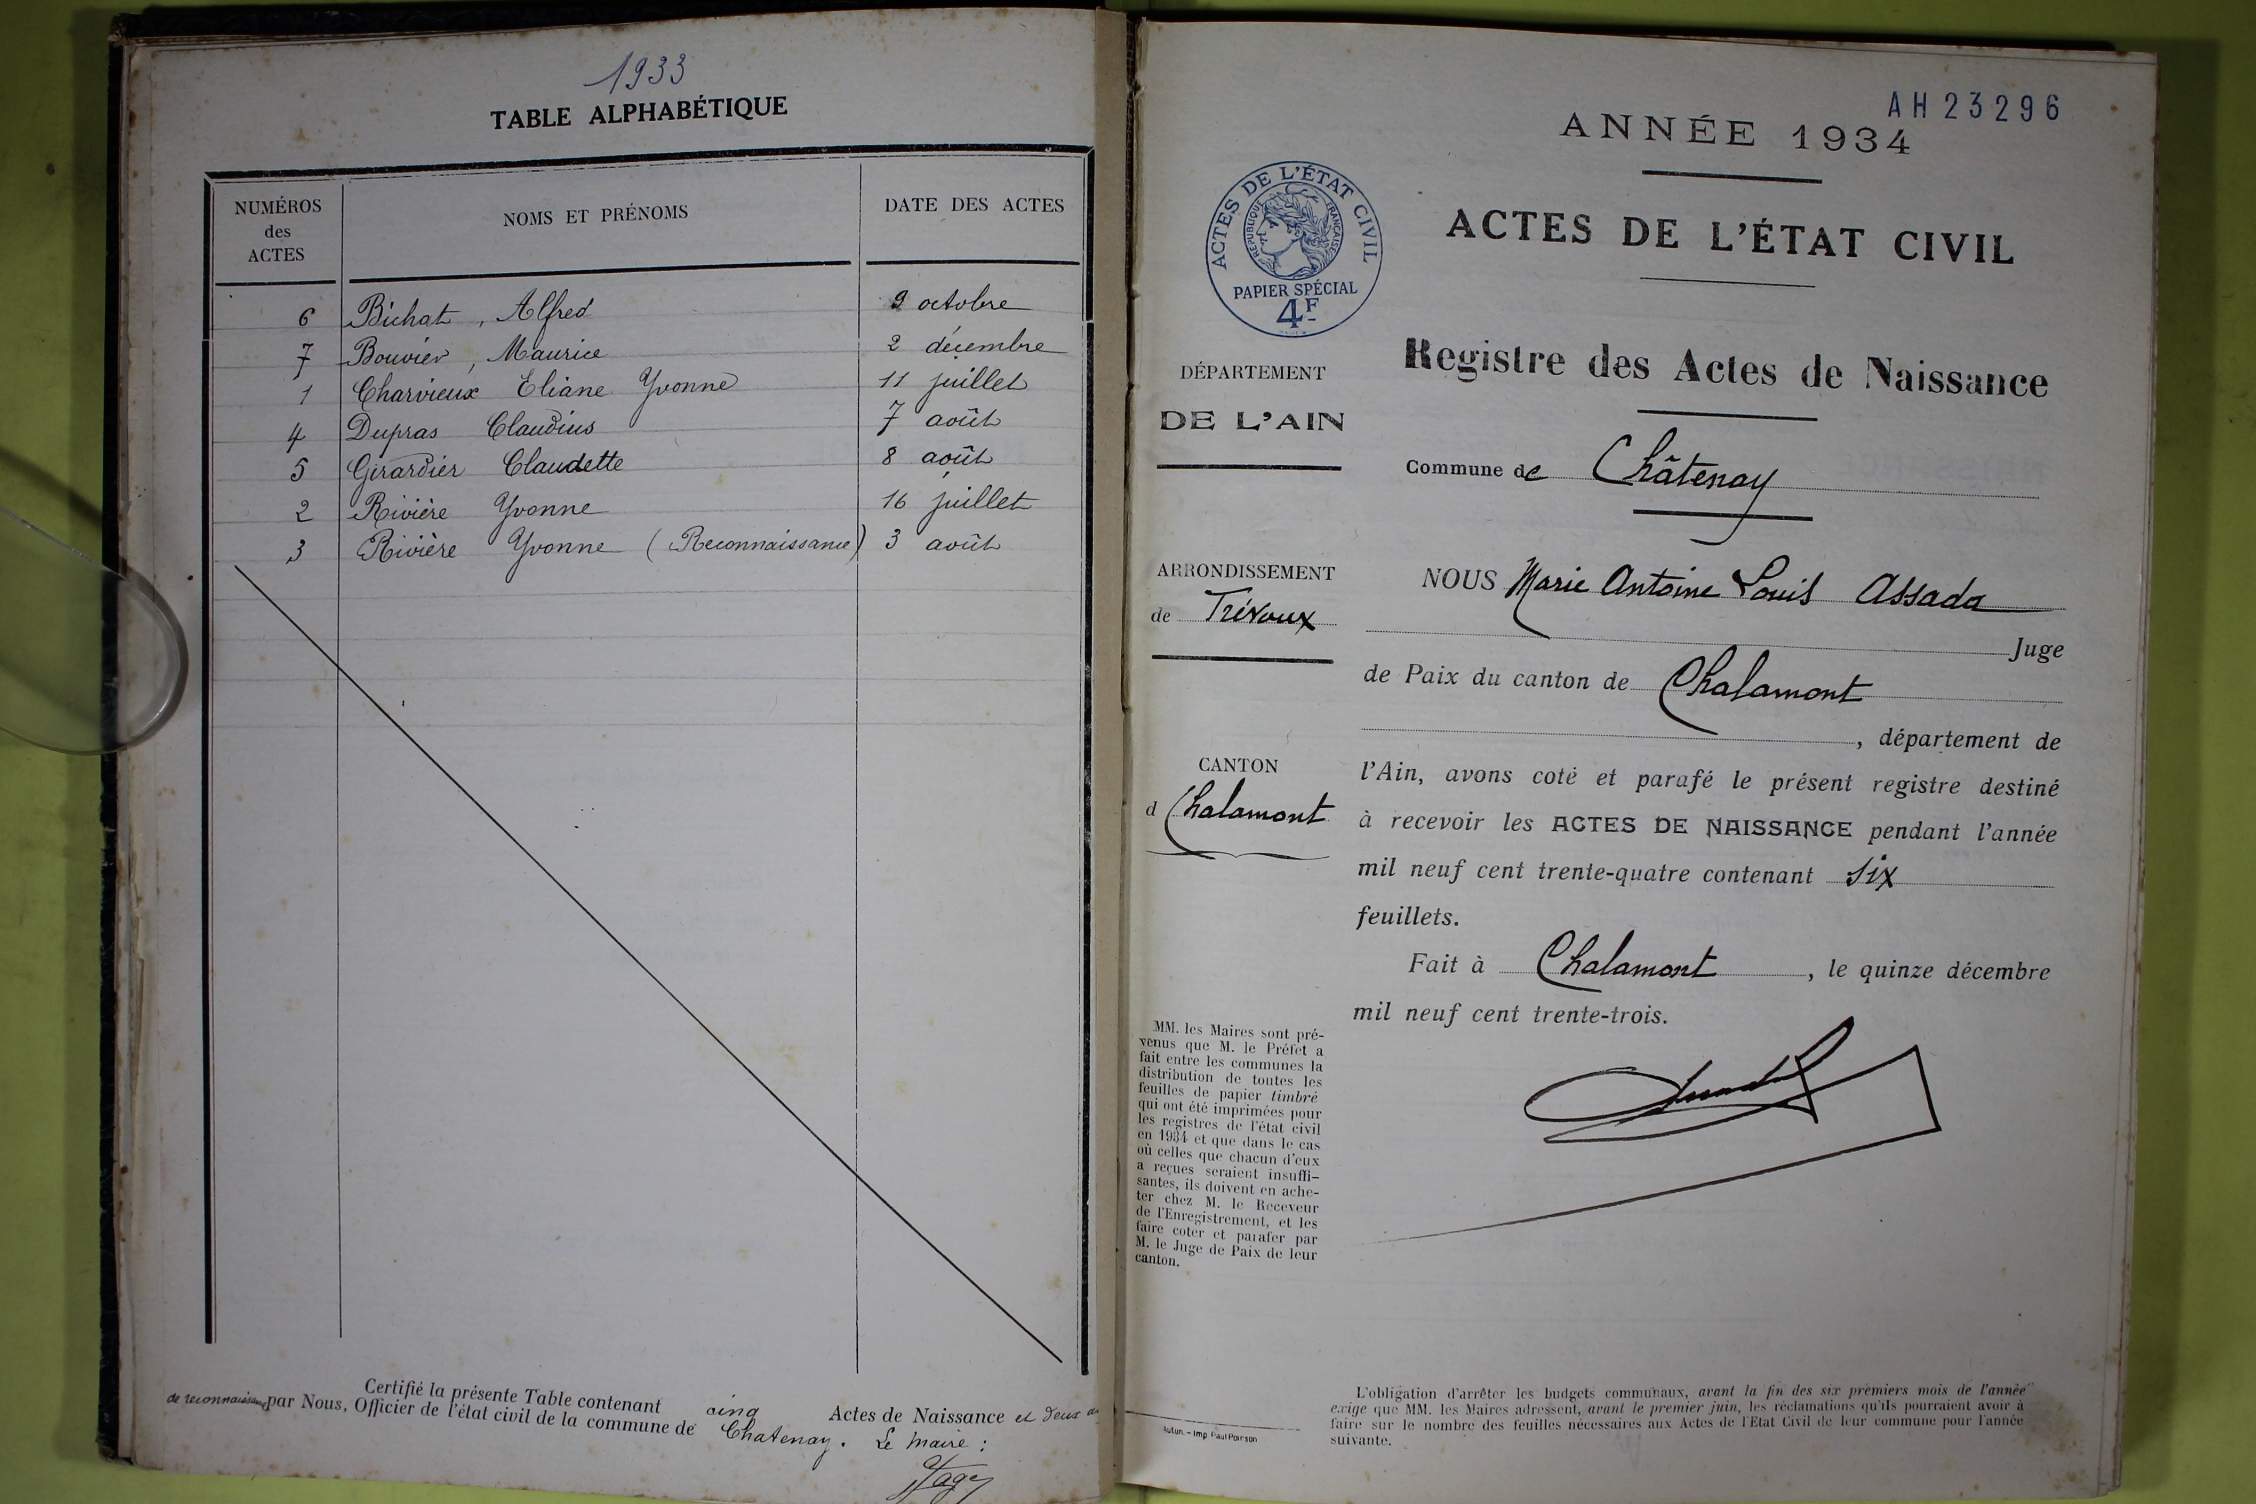 1933
TABLE ALPHABÉTIQUE
NUMÉROS des ACTES
NOMS ET PRÉNOMS
DATE DES ACTES
6 Bichat, Alfred 9 octobre
7 Bouvier, Maurice 2 décembre
1 Charvieux Eliane Yvonne 11 juillet
4 Dupras Claudius 7 août
5 Girardier Claudette 8 août
2 Rivière Yvonne 16 juillet
3 Rivière Yvonne (Reconnaissance) 3 août
Certifié la présente Table contenant cinq Actes de Naissance et deux
de reconnaissance par Nous, Officier de l'état civil de la commune de Chatenay. Le Maire :
AH23296
ANNÉE 1934
ACTES DE L'ÉTAT CIVIL
RÉPUBLIQUE FRANÇAISE
PAPIER SPÉCIAL
4F
ACTES DE L'ÉTAT CIVIL
Registre des Actes de Naissance
DÉPARTEMENT
DE L'AIN
Commune de Châtenay
ARRONDISSEMENT
de Trévoux
CANTON
d Chalamont
NOUS Marie Antoine Louis Assada
Juge
de Paix du canton de Chalamont
, département de
l'Ain, avons coté et parafé le présent registre destiné
à recevoir les ACTES DE NAISSANCE pendant l'année
mil neuf cent trente-quatre contenant six
feuillets.
Fait à Chalamont, le quinze décembre
mil neuf cent trente-trois.
MM. les Maires sont pré-
venus que M. le Préfet a
fait entre les communes la
distribution de toutes les
feuilles de papier timbré
qui ont été imprimées pour
les registres de l'état civil
en 1934 et que dans le cas
où celles que chacun d'eux
a reçues seraient insuffi-
santes, ils doivent en ache-
ter chez M. le Receveur
de l'Enregistrement, et les
faire coter et parafer par
M. le Juge de Paix de leur
canton.
Autun. - Imp Paul Poirson
L'obligation d'arrêter les budgets communaux, avant la fin des six premiers mois de l'année
exige que MM. les Maires adressent, avant le premier juin, les réclamations qu'ils pourraient avoir à
faire sur le nombre des feuilles nécessaires aux Actes de l'Etat Civil de leur commune pour l'année
suivante.